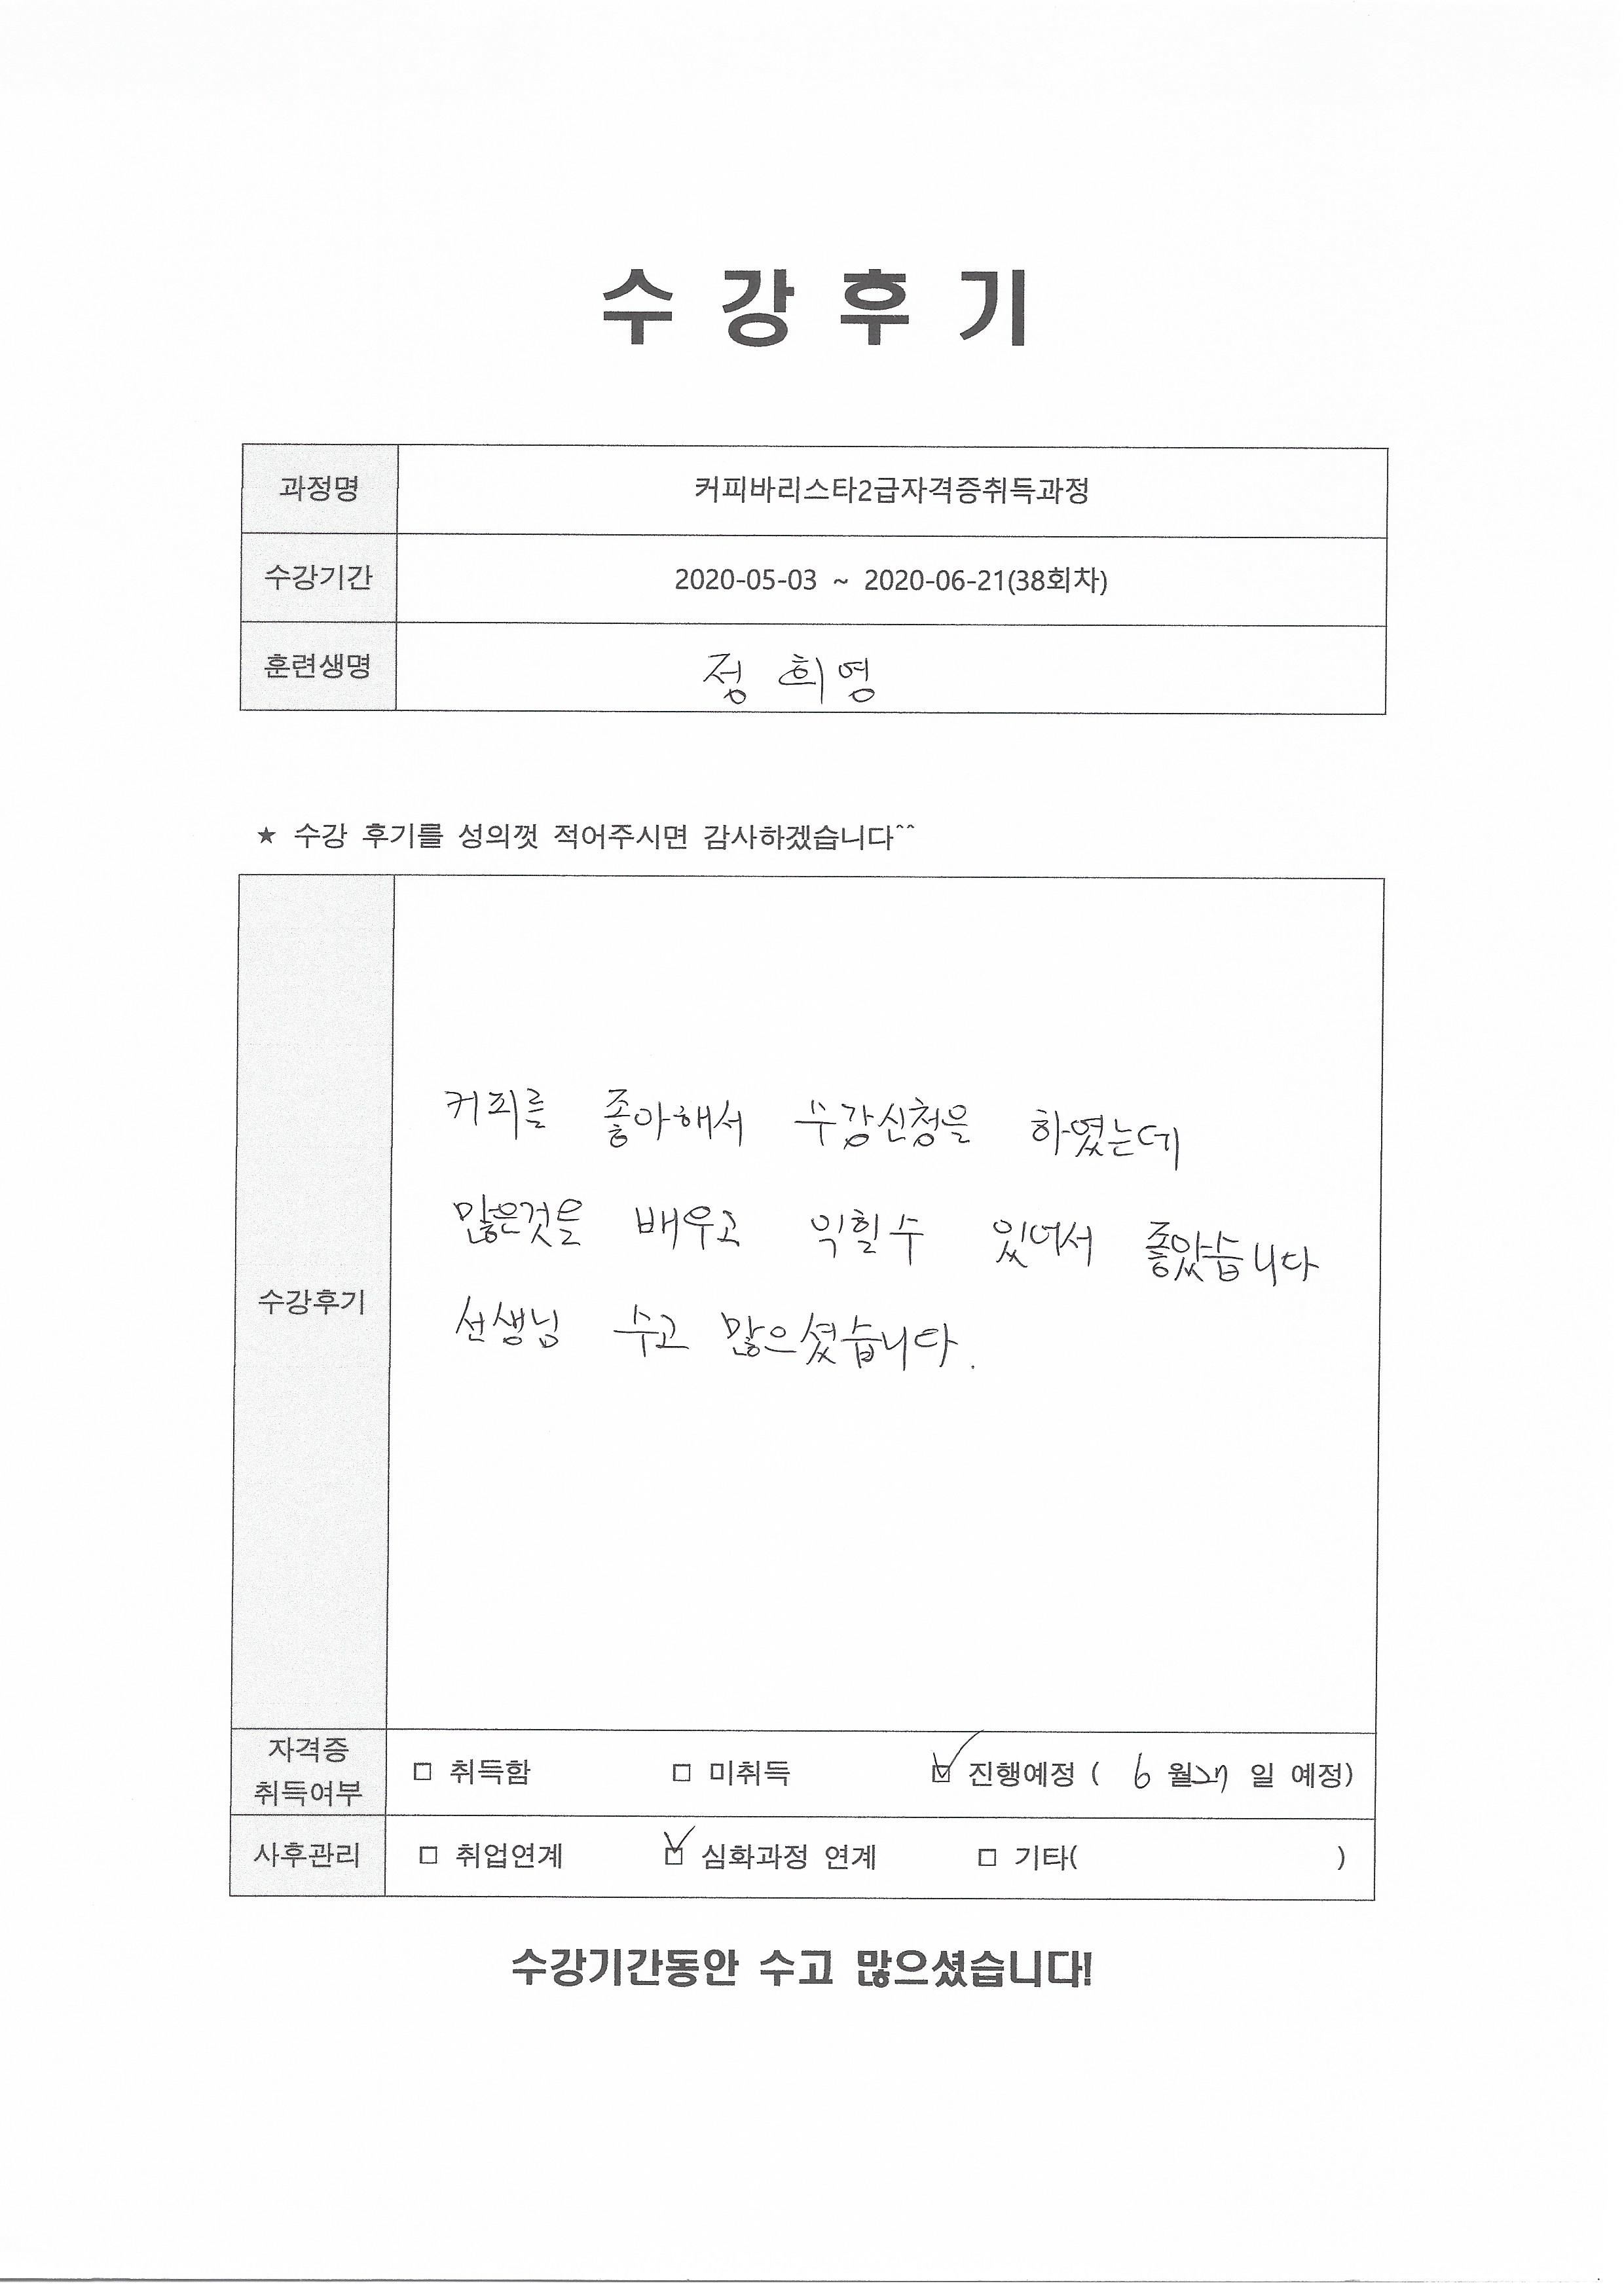 수 강 후 기
과정명 커피바리스타2급자격증취득과정
수강기간 2020-05-03 ~ 2020-06-21(38회차)
훈련생명 정 희 영
★ 수강 후기를 성의껏 적어주시면 감사하겠습니다^^
수강후기
커피를 좋아해서 수강신청을 하였는데
많은것을 배우고 익힐수 있어서 좋았습니다
선생님 수고 많으셨습니다.
자격증
취득여부
□ 취득함 □ 미취득 ☑ 진행예정 ( 6 월 27 일 예정)
사후관리 □ 취업연계 ☑ 심화과정 연계 □ 기타( )
수강기간동안 수고 많으셨습니다!